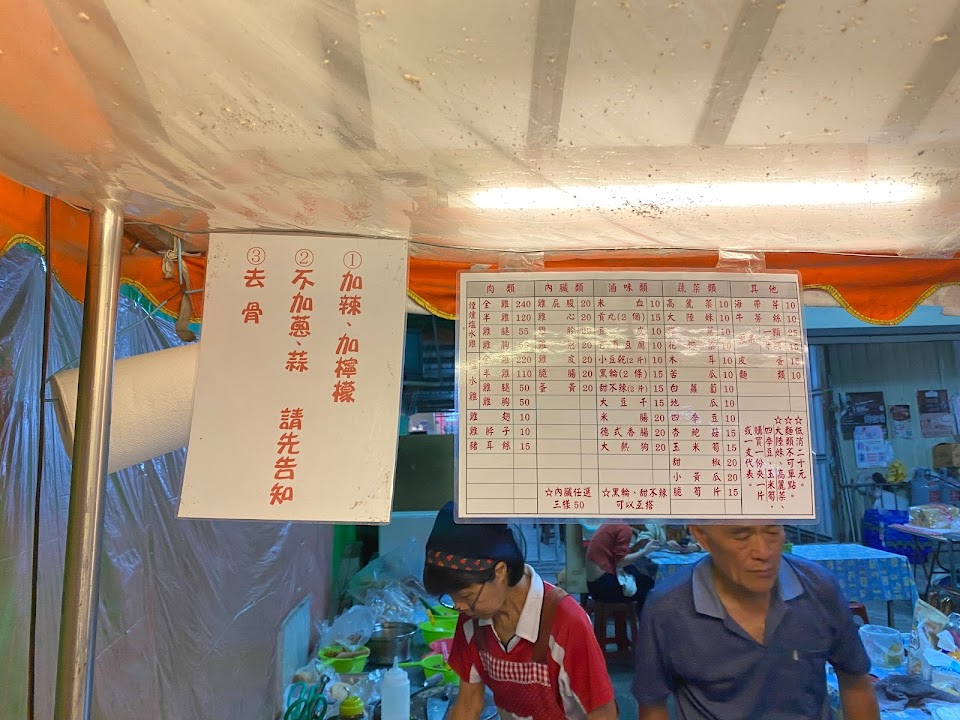 ①加辣、加檸檬
②不加蔥、蒜
③去骨
請先告知
肉類
煙燻鹽水雞
全雞 240
半雞 120
雞腿 55
雞胸
全雞 220
半雞 110
雞腿 50
雞胸 50
雞翅 10
雞脖子 10
豬耳絲 15
內臟類
雞屁股 20
雞心 20
20
20
雞皮 20
脆腸 20
蛋黃 20
☆內臟任選
三樣50
滷味類
米血 10
貢丸(2個) 15
豆皮
小豆乾(2片) 10
黑輪(2條) 15
甜不辣(2片) 15
大豆干 15
米腸 20
德式香腸 20
大熱狗 20
☆黑輪、甜不辣
可以互搭
蔬菜類
高麗菜 10
大陸妹 10
10
10
木耳 10
苦瓜 10
白蘿蔔 10
地瓜 10
四季豆 10
杏鮑菇 15
玉米筍 15
甜椒 20
小黃瓜 20
脆筍片 15
其他
海帶芽 10
牛蒡絲 10
一顆 25
皮蛋 15
麵類 10
☆低消二十元。
☆麵類不可單點。
☆大陸妹、高麗菜、
四季豆、玉米筍
購買一份夾一片
或一支代表。